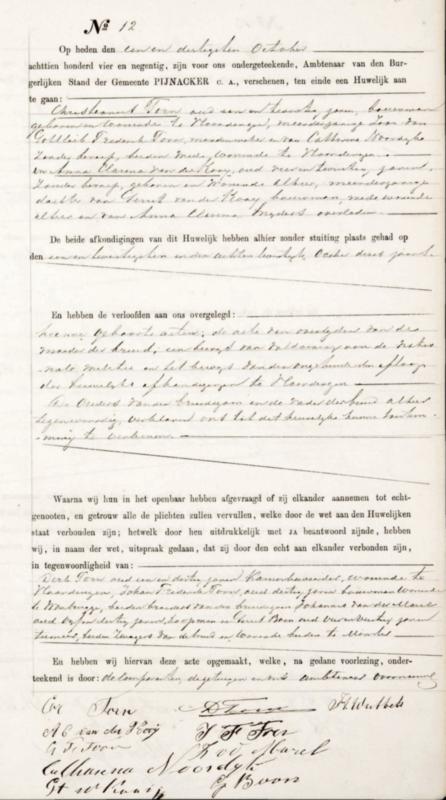 № 12
Op heden den een en dertigsten October
achttien honderd vier en negentig, zijn voor ons ondergeteekende, Ambtenaar van den Bur-
gerlijken Stand der Gemeente PIJNACKER C. A., verschenen, ten einde een Huwelijk aan
te gaan:
Torn, oud een en twintig jaren, bouwman
geboren en wonende te Vlaardingen, meerderjarige Zoon van
Gottlieb Frederik Torn, en van Catharina Noordijk
Zonder beroep, beiden mede wonende te Vlaardingen
en Anna Clasina van der Kooij, oud vier en twintig jaren,
Zonder beroep, geboren en wonende alhier, meerderjarige
dochter van Gerrit van der Kooij bouwman, mede wonende
alhier en van Anna Clasina overleden.
De beide afkondigingen van dit Huwelijk hebben alhier zonder stuiting plaats gehad op
den een en twintigsten en den acht en twintigsten October dezes jaars
En hebben de verloofden aan ons overgelegd:
hunne geboorte akten; de acte van overlijden van de
moeder der bruid, een bewijs van voldoening aan de natio-
nale militie en het bewijs van den onverhinderden afloop
der huwelijks afkondigingen te Vlaardingen
De Ouders van den bruidegom en de vader der bruid alhier
tegenwoordig, verklaren ons tot dit huwelijk hunne toestem-
ming te verleenen
Waarna wij hun in het openbaar hebben afgevraagd of zij elkander aannemen tot echt-
genooten, en getrouw alle de plichten zullen vervullen, welke door de wet aan den Huwelijken
staat verbonden zijn; hetwelk door hen uitdrukkelijk met JA beantwoord zijnde, hebben
wij, in naam der wet, uitspraak gedaan, dat zij door den echt aan elkander verbonden zijn,
in tegenwoordigheid van:
Dirk Torn oud een en dertig jaren wonende te
Vlaardingen, Johan Frederik Torn, oud dertig jaren bouwman wonende
te beiden broeders van den bruidegom Johannes van der Marel
oud en dertig jaren, koopman en Gerrit Boon oud vier en veertig jaren
beiden zwagers van de bruid en wonende beiden te
En hebben wij hiervan deze acte opgemaakt, welke, na gedane voorlezing, onder-
teekend is door: de comparanten, de getuigen en ons ambtenaar voornoemd
Torn D Torn
A C van der Kooij J F Torn
G F Torn Marel
Catharina Noordijk
G Boon